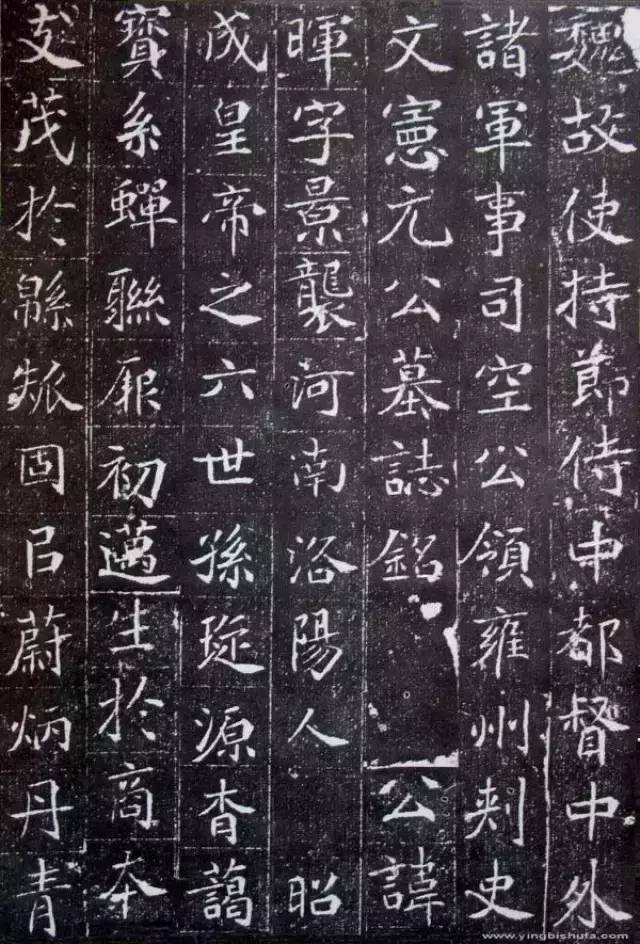 魏故使持節侍中都督中外
諸軍事司空公領雍州刾史
文憲元公墓誌銘 公諱
暉字景襲河南洛陽人 昭
成皇帝之六世孫琁源杳藹
寶系蟬聯厥初邁生於商本
支茂於緜瓞固㠯蔚炳丹青
www.yingbishufa.com